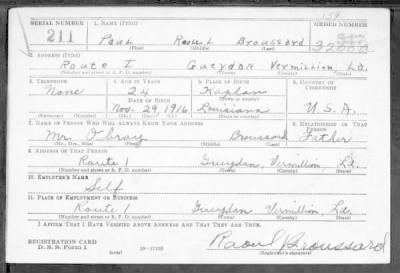 SERIAL NUMBER 1. NAME (Print) ORDER NUMBER
211 Paul Raoul Broussard
(First) (Middle) (Last)
2. ADDRESS (Print)
Route I Gueydan Vermillion, La.
(Number and street or R. F. D. number) (Town) (County) (State)
3. TELEPHONE 4. AGE IN YEARS 5. PLACE OF BIRTH 6. COUNTRY OF CITIZENSHIP
None 24 Kaplan
DATE OF BIRTH (Town or county)
Nov. 29, 1916 Louisiana U.S.A.
(Exchange) (Number) (Mo.) (Day) (Yr.) (State or country)
7. NAME OF PERSON WHO WILL ALWAYS KNOW YOUR ADDRESS 8. RELATIONSHIP OF THAT PERSON
Mr. Obray Broussard Father
(Mr., Mrs., Miss) (First) (Middle) (Last)
9. ADDRESS OF THAT PERSON
Route 1 Gueydan, Vermillion, La.
(Number and street or R. F. D. number) (Town) (County) (State)
10. EMPLOYER'S NAME
Self
11. PLACE OF EMPLOYMENT OR BUSINESS
Route 1 Gueydan Vermillion La.
(Number and street or R. F. D. number) (Town) (County) (State)
I AFFIRM THAT I HAVE VERIFIED ABOVE ANSWERS AND THAT THEY ARE TRUE.
REGISTRATION CARD Raoul Broussard
D. S. S. Form 1 (over) (Registrant's signature)